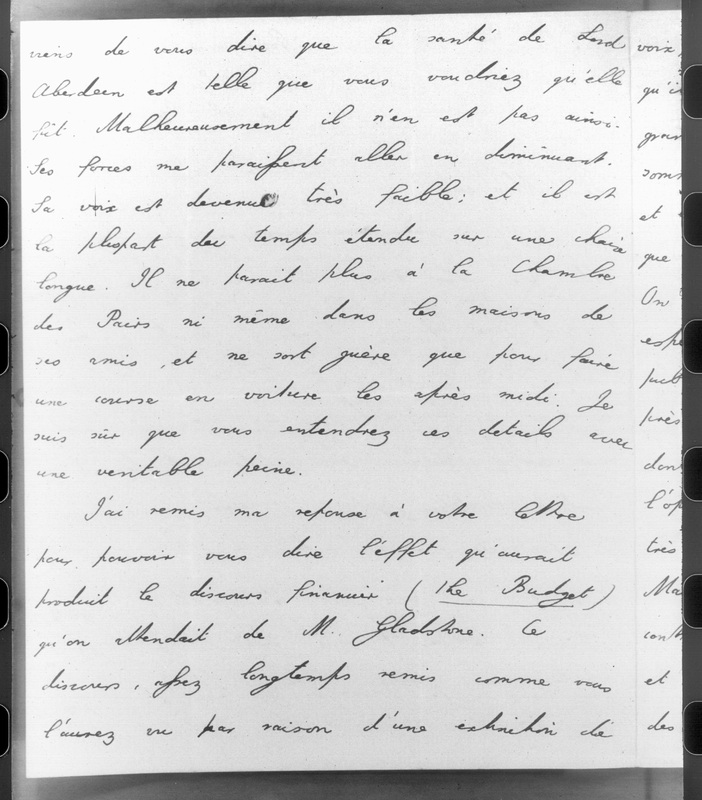 viens de vous dire que la santé de Lord
Aberdeen est telle que vous voudriez qu'elle
fût. Malheureusement il n'en est pas ainsi.
Ses forces me paraissent aller en diminuant.
Sa voix est devenue très faible; et il est
la plupart du temps étendu sur une chaise
longue. Il ne parait plus à la Chambre
des Pairs ni même dans les maisons de
ses amis, et ne sort guère que pour faire
une course en voiture les après midi. Je
suis sûr que vous entendrez ces details avec
une veritable peine.
J'ai remis ma reponse à votre lettre
pour pouvoir vous dire l'effet qu'aurait
produit le discours financier (the Budget)
qu'on attendait de M. Gladstone. Ce
discours, assez longtemps remis comme vous
l'aurez vu par raison d'une extinction de
voix,
et
que
On
près
l'op
très
Ma
et
des